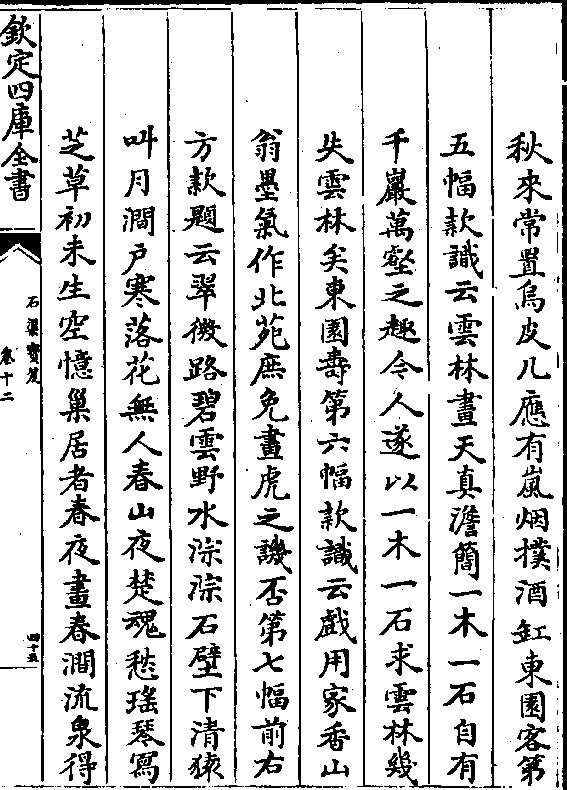 秋來常置烏皮几應有嵐烟撲酒缸東園客第
五幅款識云雲林畫天真澹簡一木一石自有
千巖萬壑之趣令人遂以一木一石求雲林幾
失雲林矣東園壽第六幅款識云戲用家香山
翁墨氣作北苑庶免畫虎之譏否第七幅前右
方款題云翠微路碧雲野水淙淙石壁下清猿
叫月澗戶寒落花無人春山夜楚魂愁瑤琴寫
芝草初未生空憶巢居者春夜畫春澗流泉得
欽定四庫全書
石渠寶笈
卷十二
四十五